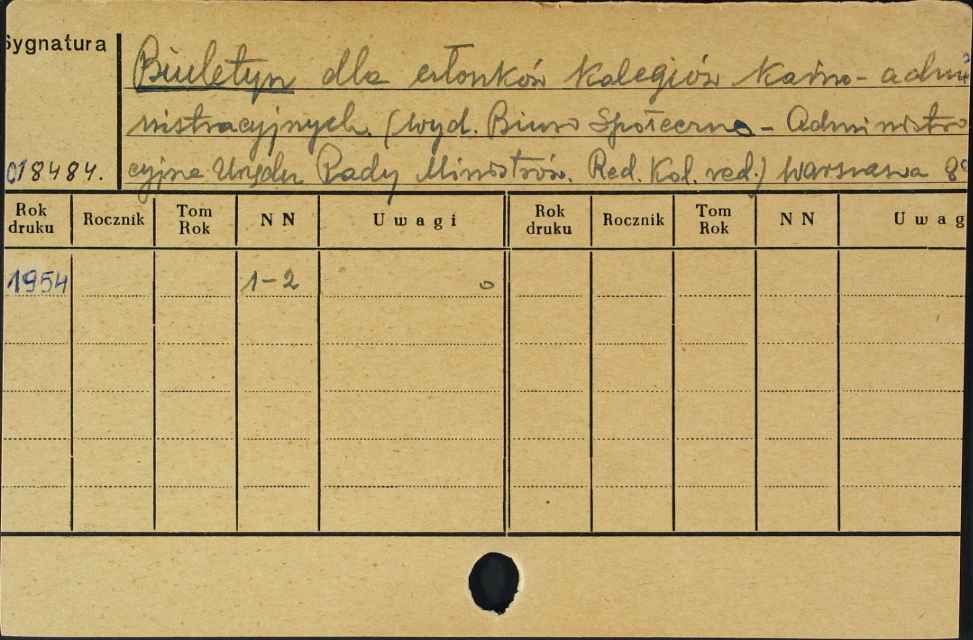 Sygnatura
Biuletyn dla członków Kolegiów Karno-admi
nistracyjnych. (Wyd. Biuro Społeczno-Administra
cyjne Urzędu Rady Ministrów. Red. Kol. red.) Warszawa 8°
018484.
Rok druku Rocznik Tom Rok NN Uwagi Rok druku Rocznik Tom Rok NN Uwag
1954 1-2